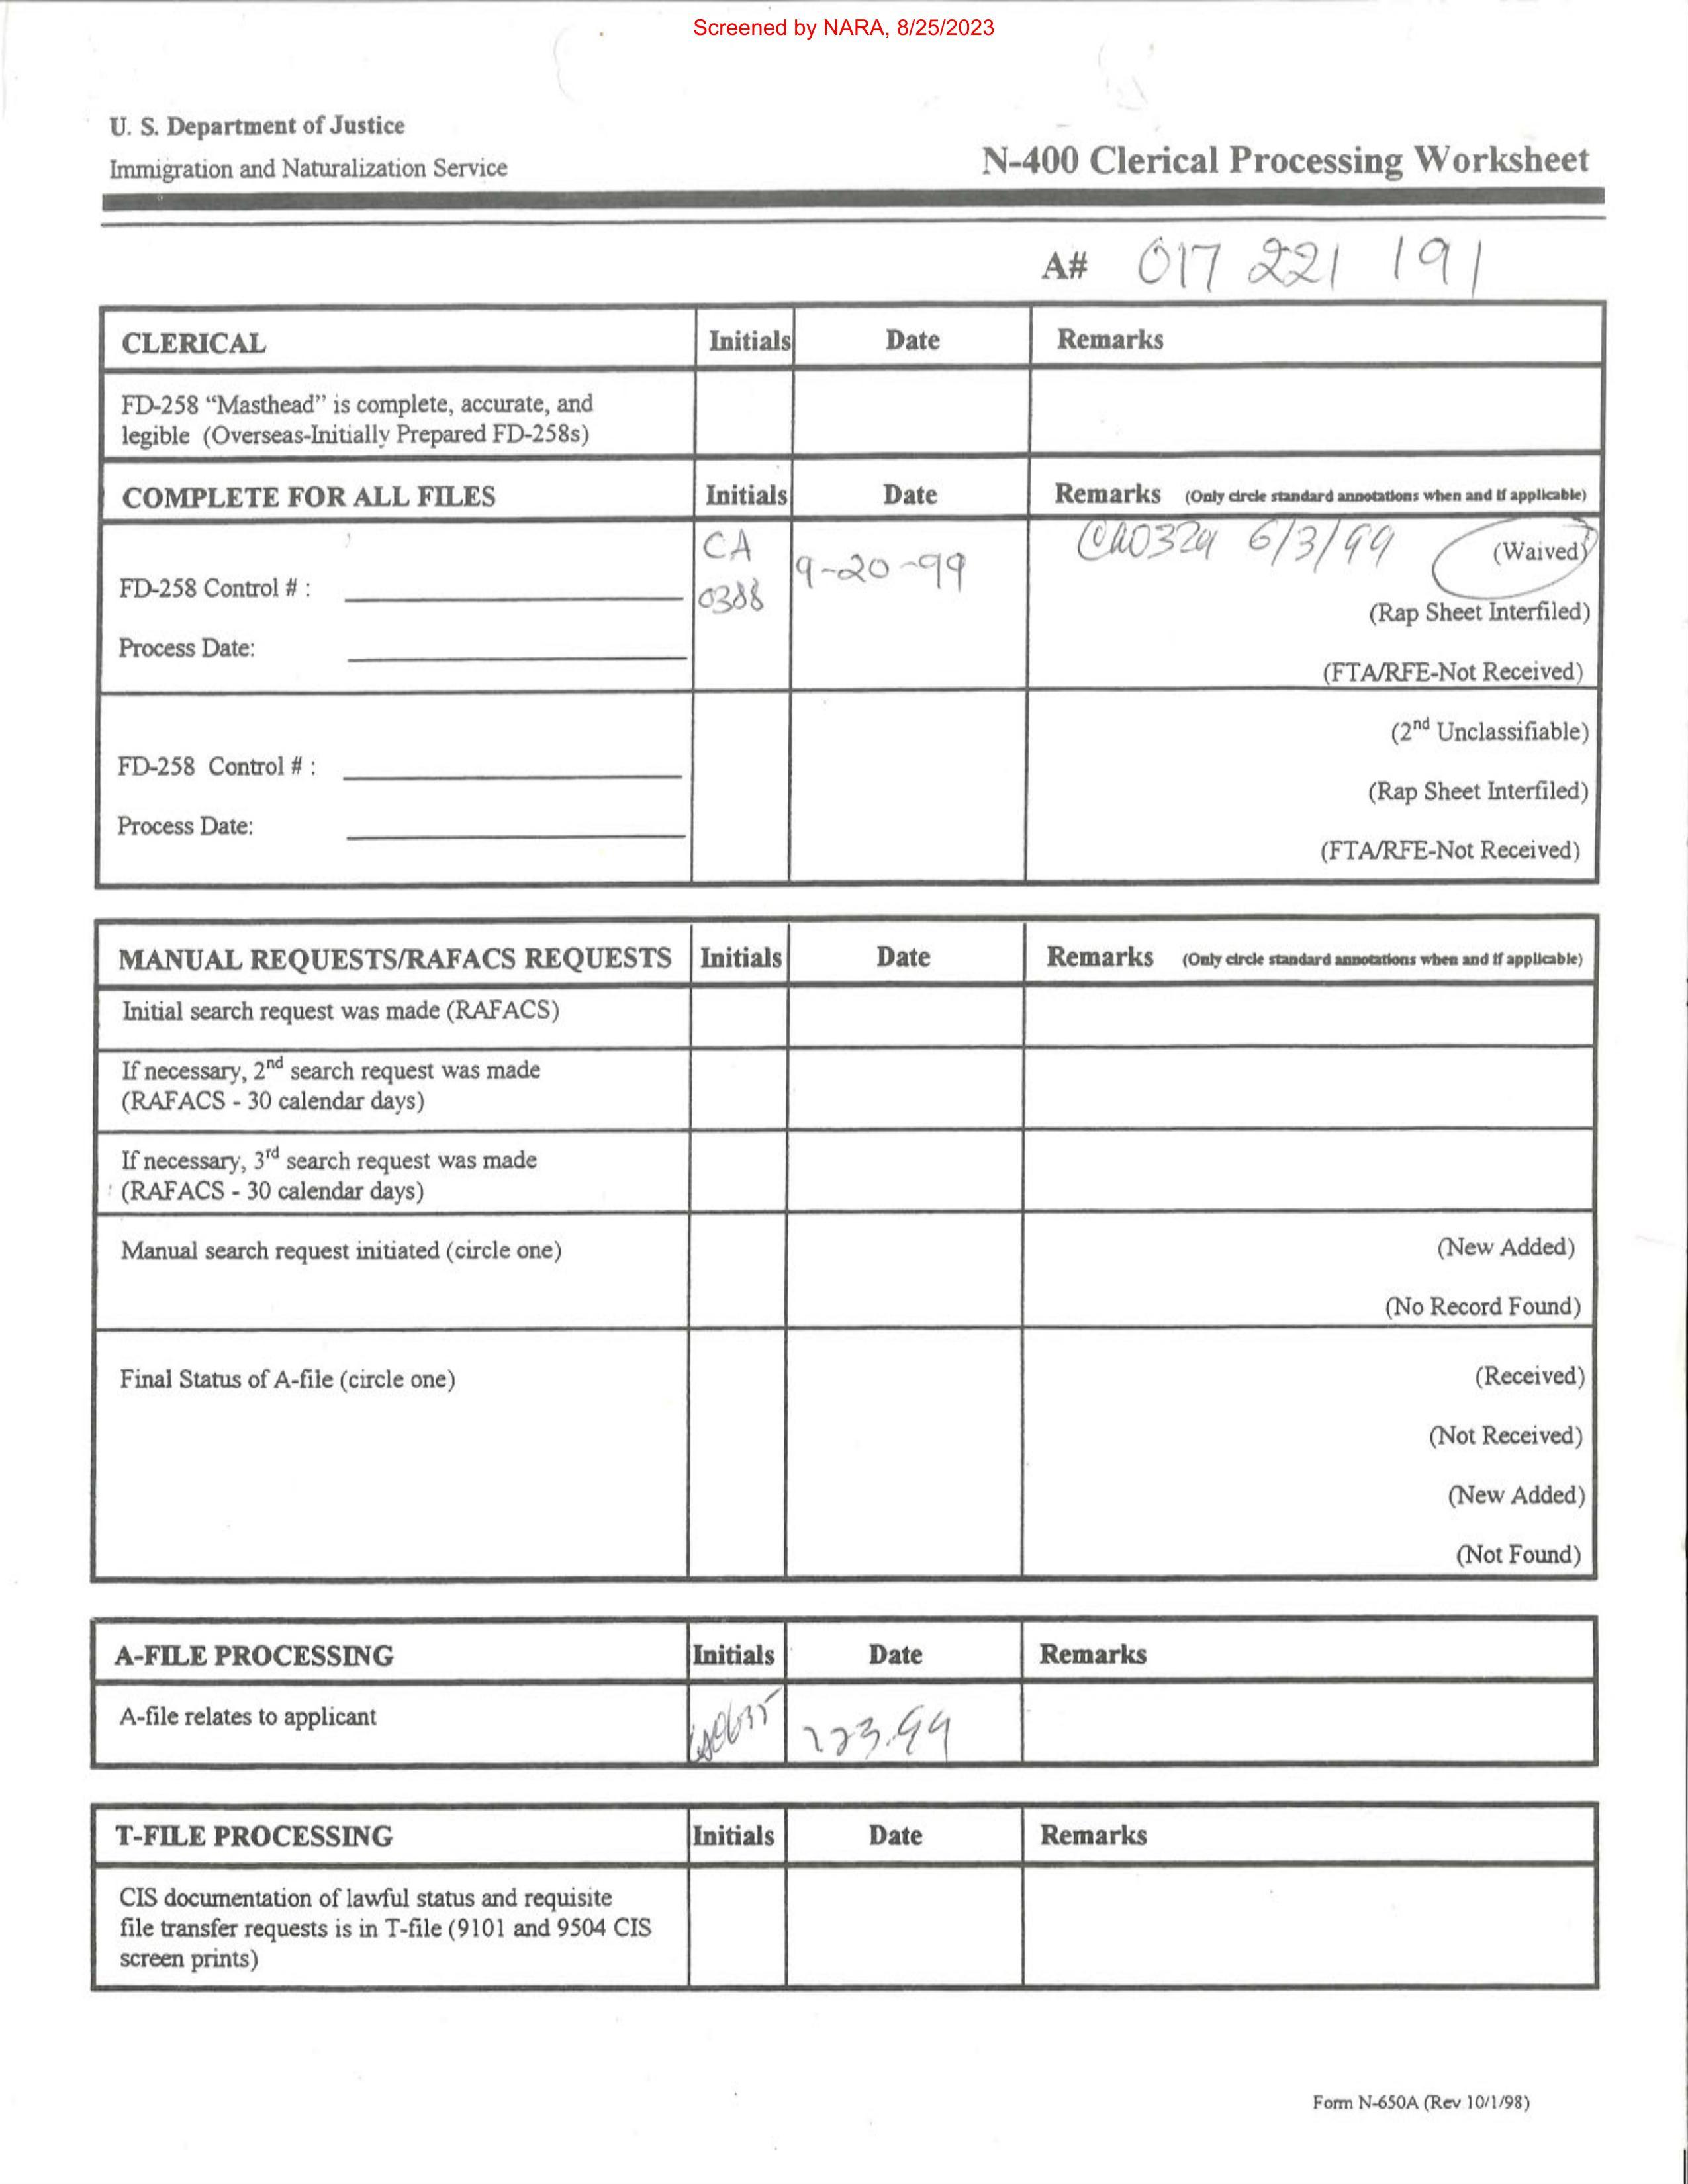 Screened by NARA, 8/25/2023
U. S. Department of Justice
Immigration and Naturalization Service
N-400 Clerical Processing Worksheet
A# 017 221 191
CLERICAL Initials Date Remarks
FD-258 “Masthead” is complete, accurate, and
legible (Overseas-Initially Prepared FD-258s)
COMPLETE FOR ALL FILES Initials Date Remarks (Only circle standard annotations when and if applicable)
CA 9-20-99 6/3/99 (Waived)
FD-258 Control # : 0388
(Rap Sheet Interfiled)
Process Date:
(FTA/RFE-Not Received)
(2nd Unclassifiable)
FD-258 Control # :
(Rap Sheet Interfiled)
Process Date:
(FTA/RFE-Not Received)
MANUAL REQUESTS/RAFACS REQUESTS Initials Date Remarks (Only circle standard annotations when and if applicable)
Initial search request was made (RAFACS)
If necessary, 2nd search request was made
(RAFACS - 30 calendar days)
If necessary, 3rd search request was made
(RAFACS - 30 calendar days)
Manual search request initiated (circle one) (New Added)
(No Record Found)
Final Status of A-file (circle one) (Received)
(Not Received)
(New Added)
(Not Found)
A-FILE PROCESSING Initials Date Remarks
A-file relates to applicant
T-FILE PROCESSING Initials Date Remarks
CIS documentation of lawful status and requisite
file transfer requests is in T-file (9101 and 9504 CIS
screen prints)
Form N-650A (Rev 10/1/98)